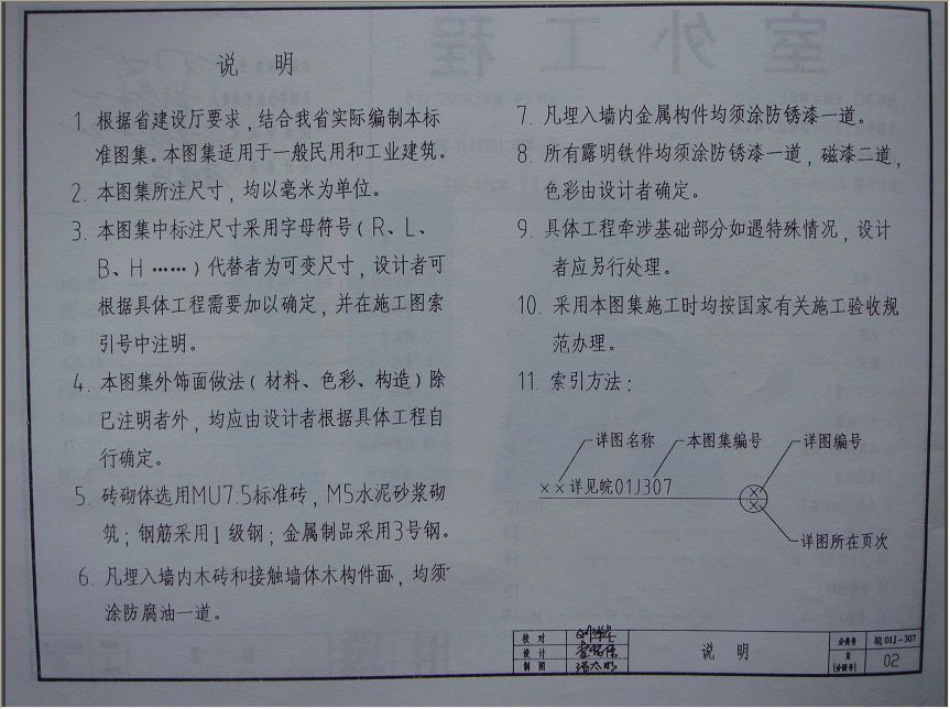 室外工程
说 明
1. 根据省建设厅要求，结合我省实际编制本标
准图集。本图集适用于一般民用和工业建筑。
2. 本图集所注尺寸，均以毫米为单位。
3. 本图集中标注尺寸采用字母符号(R、L、
B、H……)代替者为可变尺寸，设计者可
根据具体工程需要加以确定，并在施工图索
引号中注明。
4. 本图集外饰面做法(材料、色彩、构造)除
已注明者外，均应由设计者根据具体工程自
行确定。
5. 砖砌体选用MU7.5标准砖，M5水泥砂浆砌
筑；钢筋采用I级钢；金属制品采用3号钢。
6. 凡埋入墙内木砖和接触墙体木构件面，均须
涂防腐油一道。
7. 凡埋入墙内金属构件均须涂防锈漆一道。
8. 所有露明铁件均须涂防锈漆一道，磁漆二道，
色彩由设计者确定。
9. 具体工程牵涉基础部分如遇特殊情况，设计
者应另行处理。
10. 采用本图集施工时均按国家有关施工验收规
范办理。
11. 索引方法：
详图名称 本图集编号 详图编号
××详见皖01J307
××
××
详图所在页次
校 对
设 计
制 图
说 明
分类号 皖01J-307
页
(分图号) 02